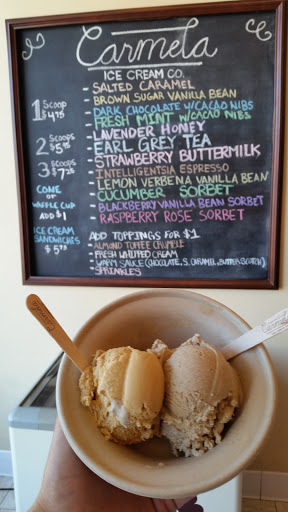 Carmela
ICE CREAM CO.
- SALTED CARAMEL
- BROWN SUGAR VANILLA BEAN
- DARK CHOCOLATE W/CACAO NIBS
- FRESH MINT W/CACAO NIBS
- LAVENDER HONEY
- EARL GREY TEA
- STRAWBERRY BUTTERMILK
- INTELLIGENTSIA ESPRESSO
- LEMON VERBENA VANILLA BEAN
- CUCUMBER SORBET
- BLACKBERRY VANILLA BEAN SORBET
- RASPBERRY ROSE SORBET
1 SCOOP
$4.75
2 SCOOPS
$5.75
3 SCOOPS
$7.25
CONE
OR
WAFFLE CUP
ADD $1
ICE CREAM
SANDWICHES
$5.75
ADD TOPPINGS FOR $1
- ALMOND TOFFEE CRUMBLE
- FRESH WHIPPED CREAM
- WARM SAUCE (CHOCOLATE, S. CARAMEL, BUTTERSCOTCH)
- SPRINKLES
Carmela